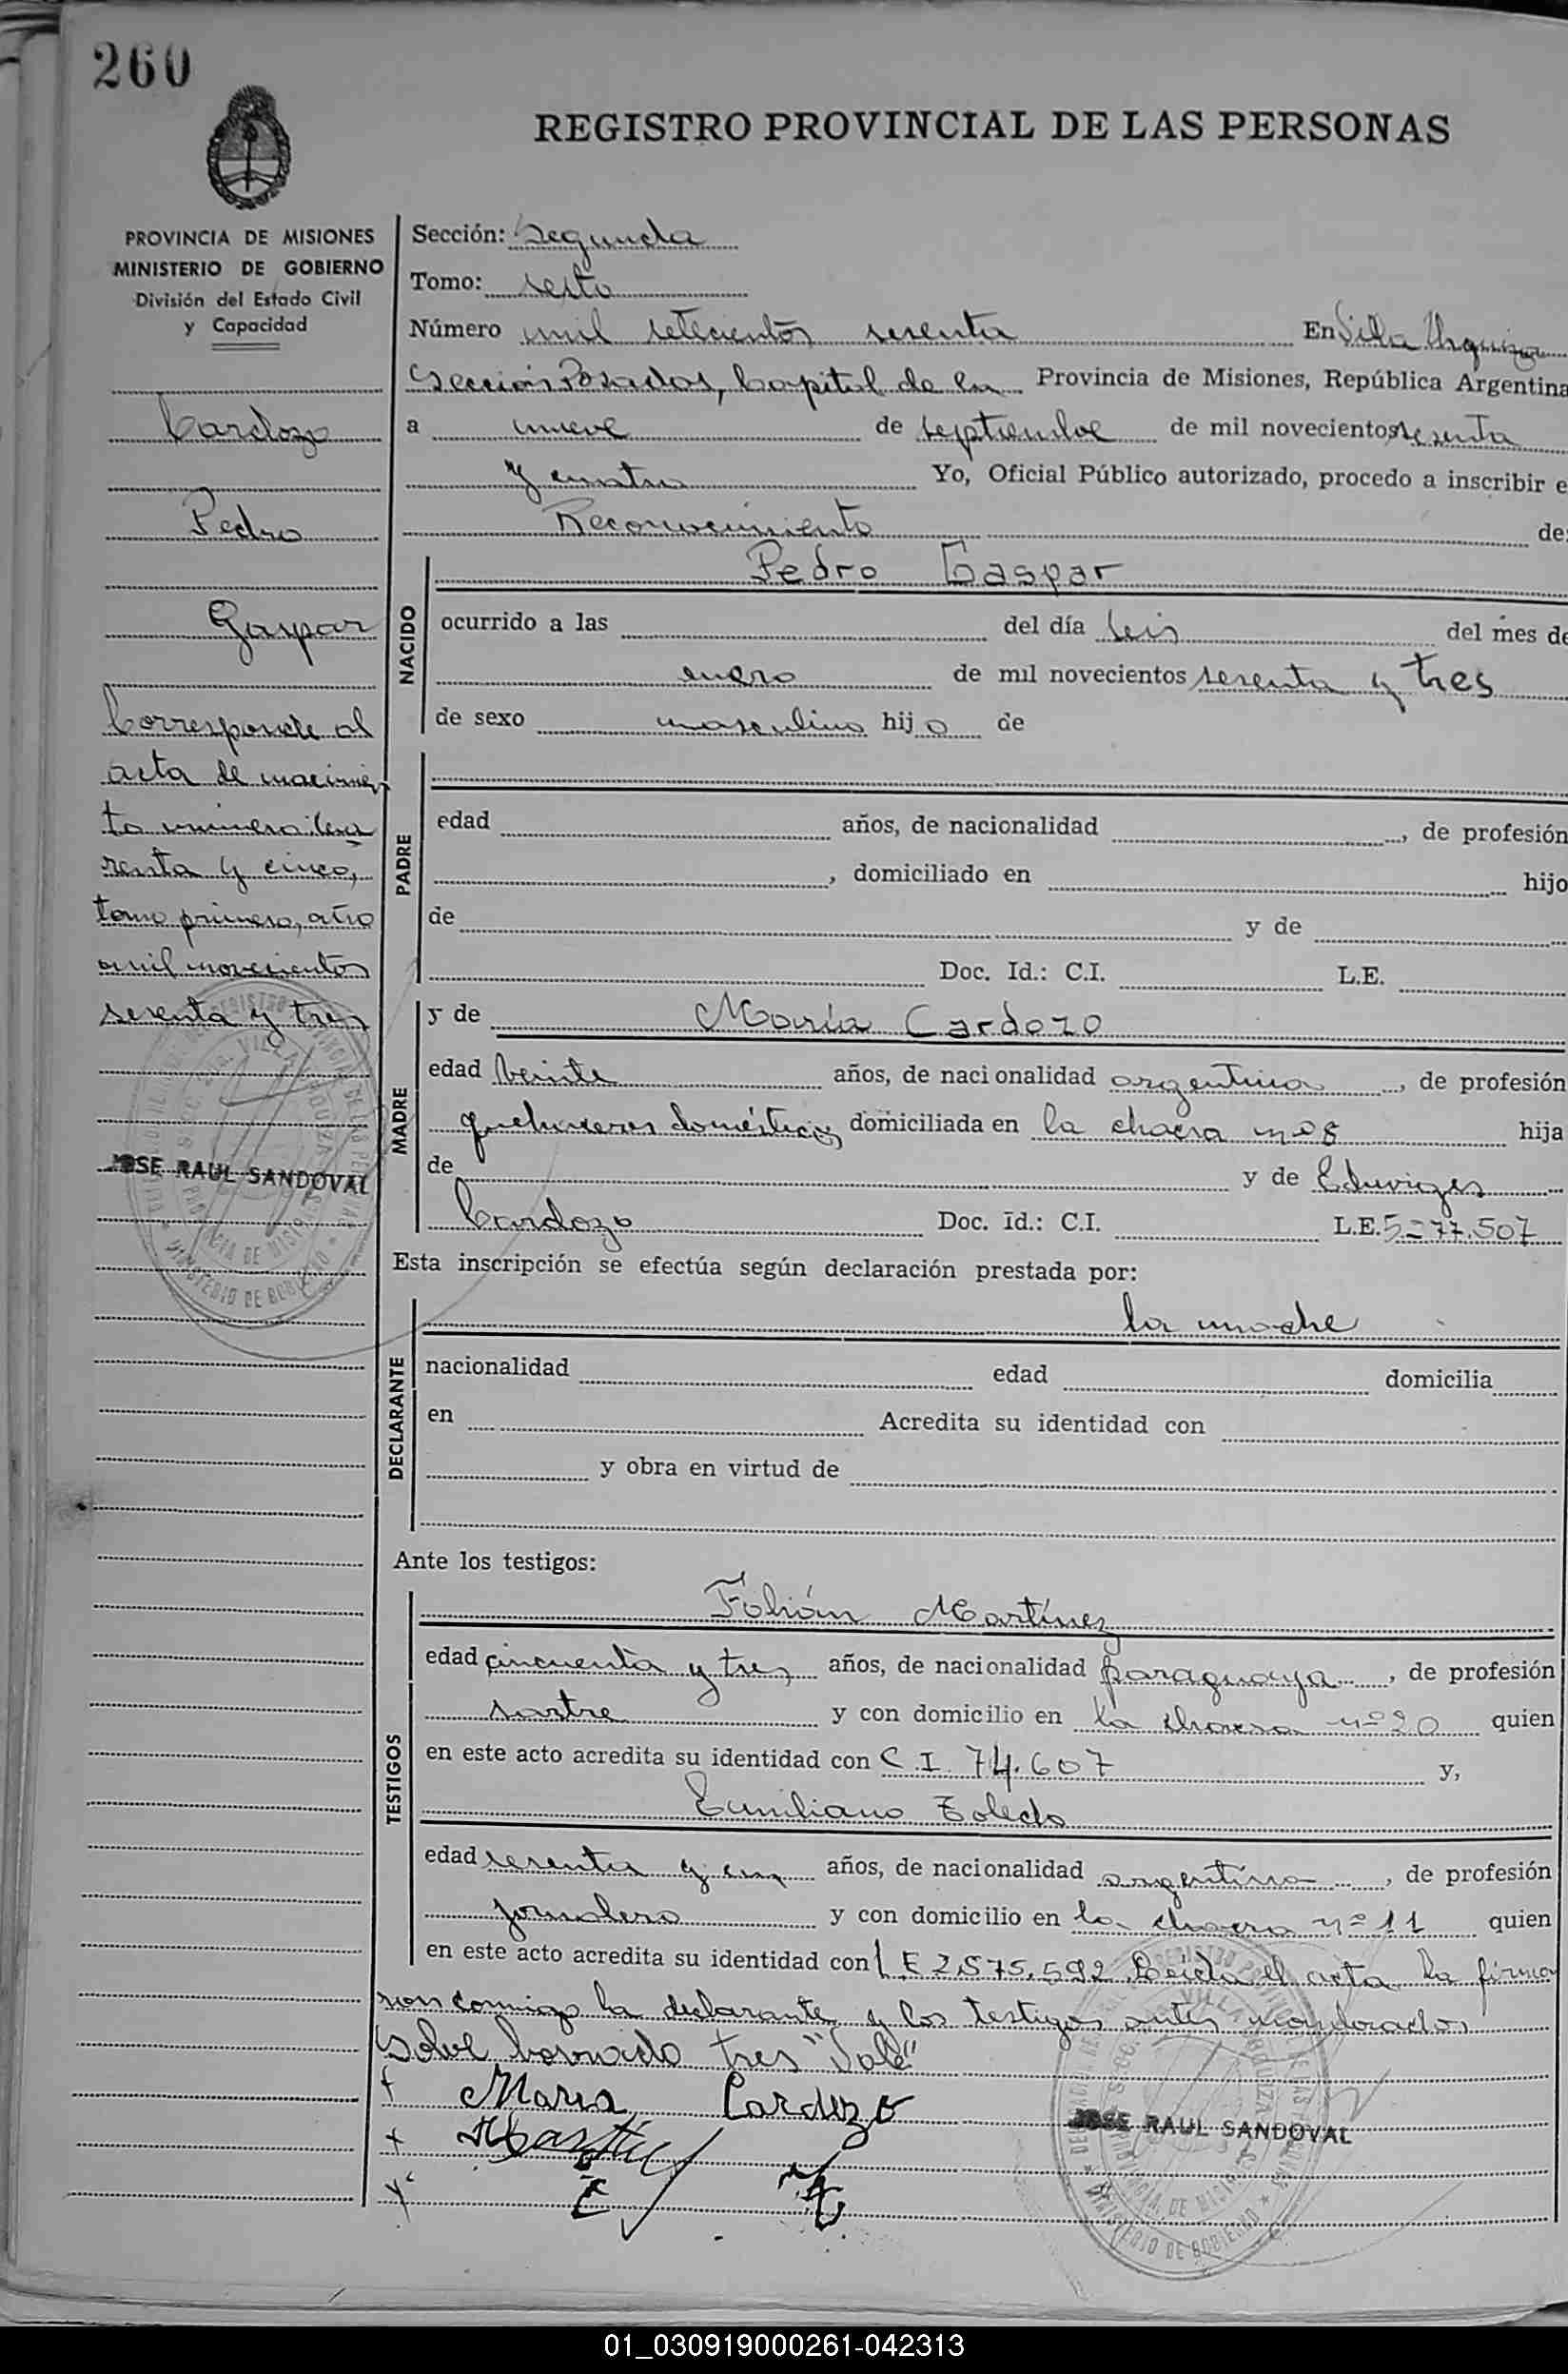 260
REGISTRO PROVINCIAL DE LAS PERSONAS
PROVINCIA DE MISIONES
MINISTERIO DE GOBIERNO
División del Estado Civil
y Capacidad
Cardozo
Pedro
Gaspar
Corresponde al
acta de nacimien
to número
y cinco,
tomo primero, año
mil novecientos
sesenta y tres
JOSE RAUL SANDOVAL
Sección: Segunda
Tomo: sesto
Número mil setecientos sesenta En Villa Urquiza
Sección Posadas, Capital de la Provincia de Misiones, República Argentina
a nueve de septiembre de mil novecientos sesenta
y cuatro Yo, Oficial Público autorizado, procedo a inscribir e
Reconocimiento de:
NACIDO
Pedro Gaspar
ocurrido a las del día seis del mes de
enero de mil novecientos sesenta y tres
de sexo masculino hijo de
PADRE
edad años, de nacionalidad , de profesión
, domiciliado en hijo
de y de
Doc. Id.: C.I. L.E.
MADRE
y de María Cardozo
edad veinte años, de nacionalidad argentina , de profesión
quehaceres domésticos domiciliada en la chacra nº 8 hija
de y de Eduviges
Cardozo Doc. Id.: C.I. L.E. 5.=77.507
Esta inscripción se efectúa según declaración prestada por:
DECLARANTE
la madre
nacionalidad edad domicilia
en Acredita su identidad con
y obra en virtud de
Ante los testigos:
TESTIGOS
Martínez
edad cincuenta y tres años, de nacionalidad paraguaya , de profesión
sastre y con domicilio en la chacra nº 20 quien
en este acto acredita su identidad con C.I. 74.607 y,
Emiliano Toledo
edad sesenta y un años, de nacionalidad argentina , de profesión
jornalero y con domicilio en la chacra nº 11 quien
en este acto acredita su identidad con L E 2.575.592. Leída el acta la firma
ron conmigo la declarante y los testigos antes nombrados
Sobre borrado tres "Vale"
+ Maria Cardozo
+ Martinez
JOSE RAUL SANDOVAL
01_030919000261-042313